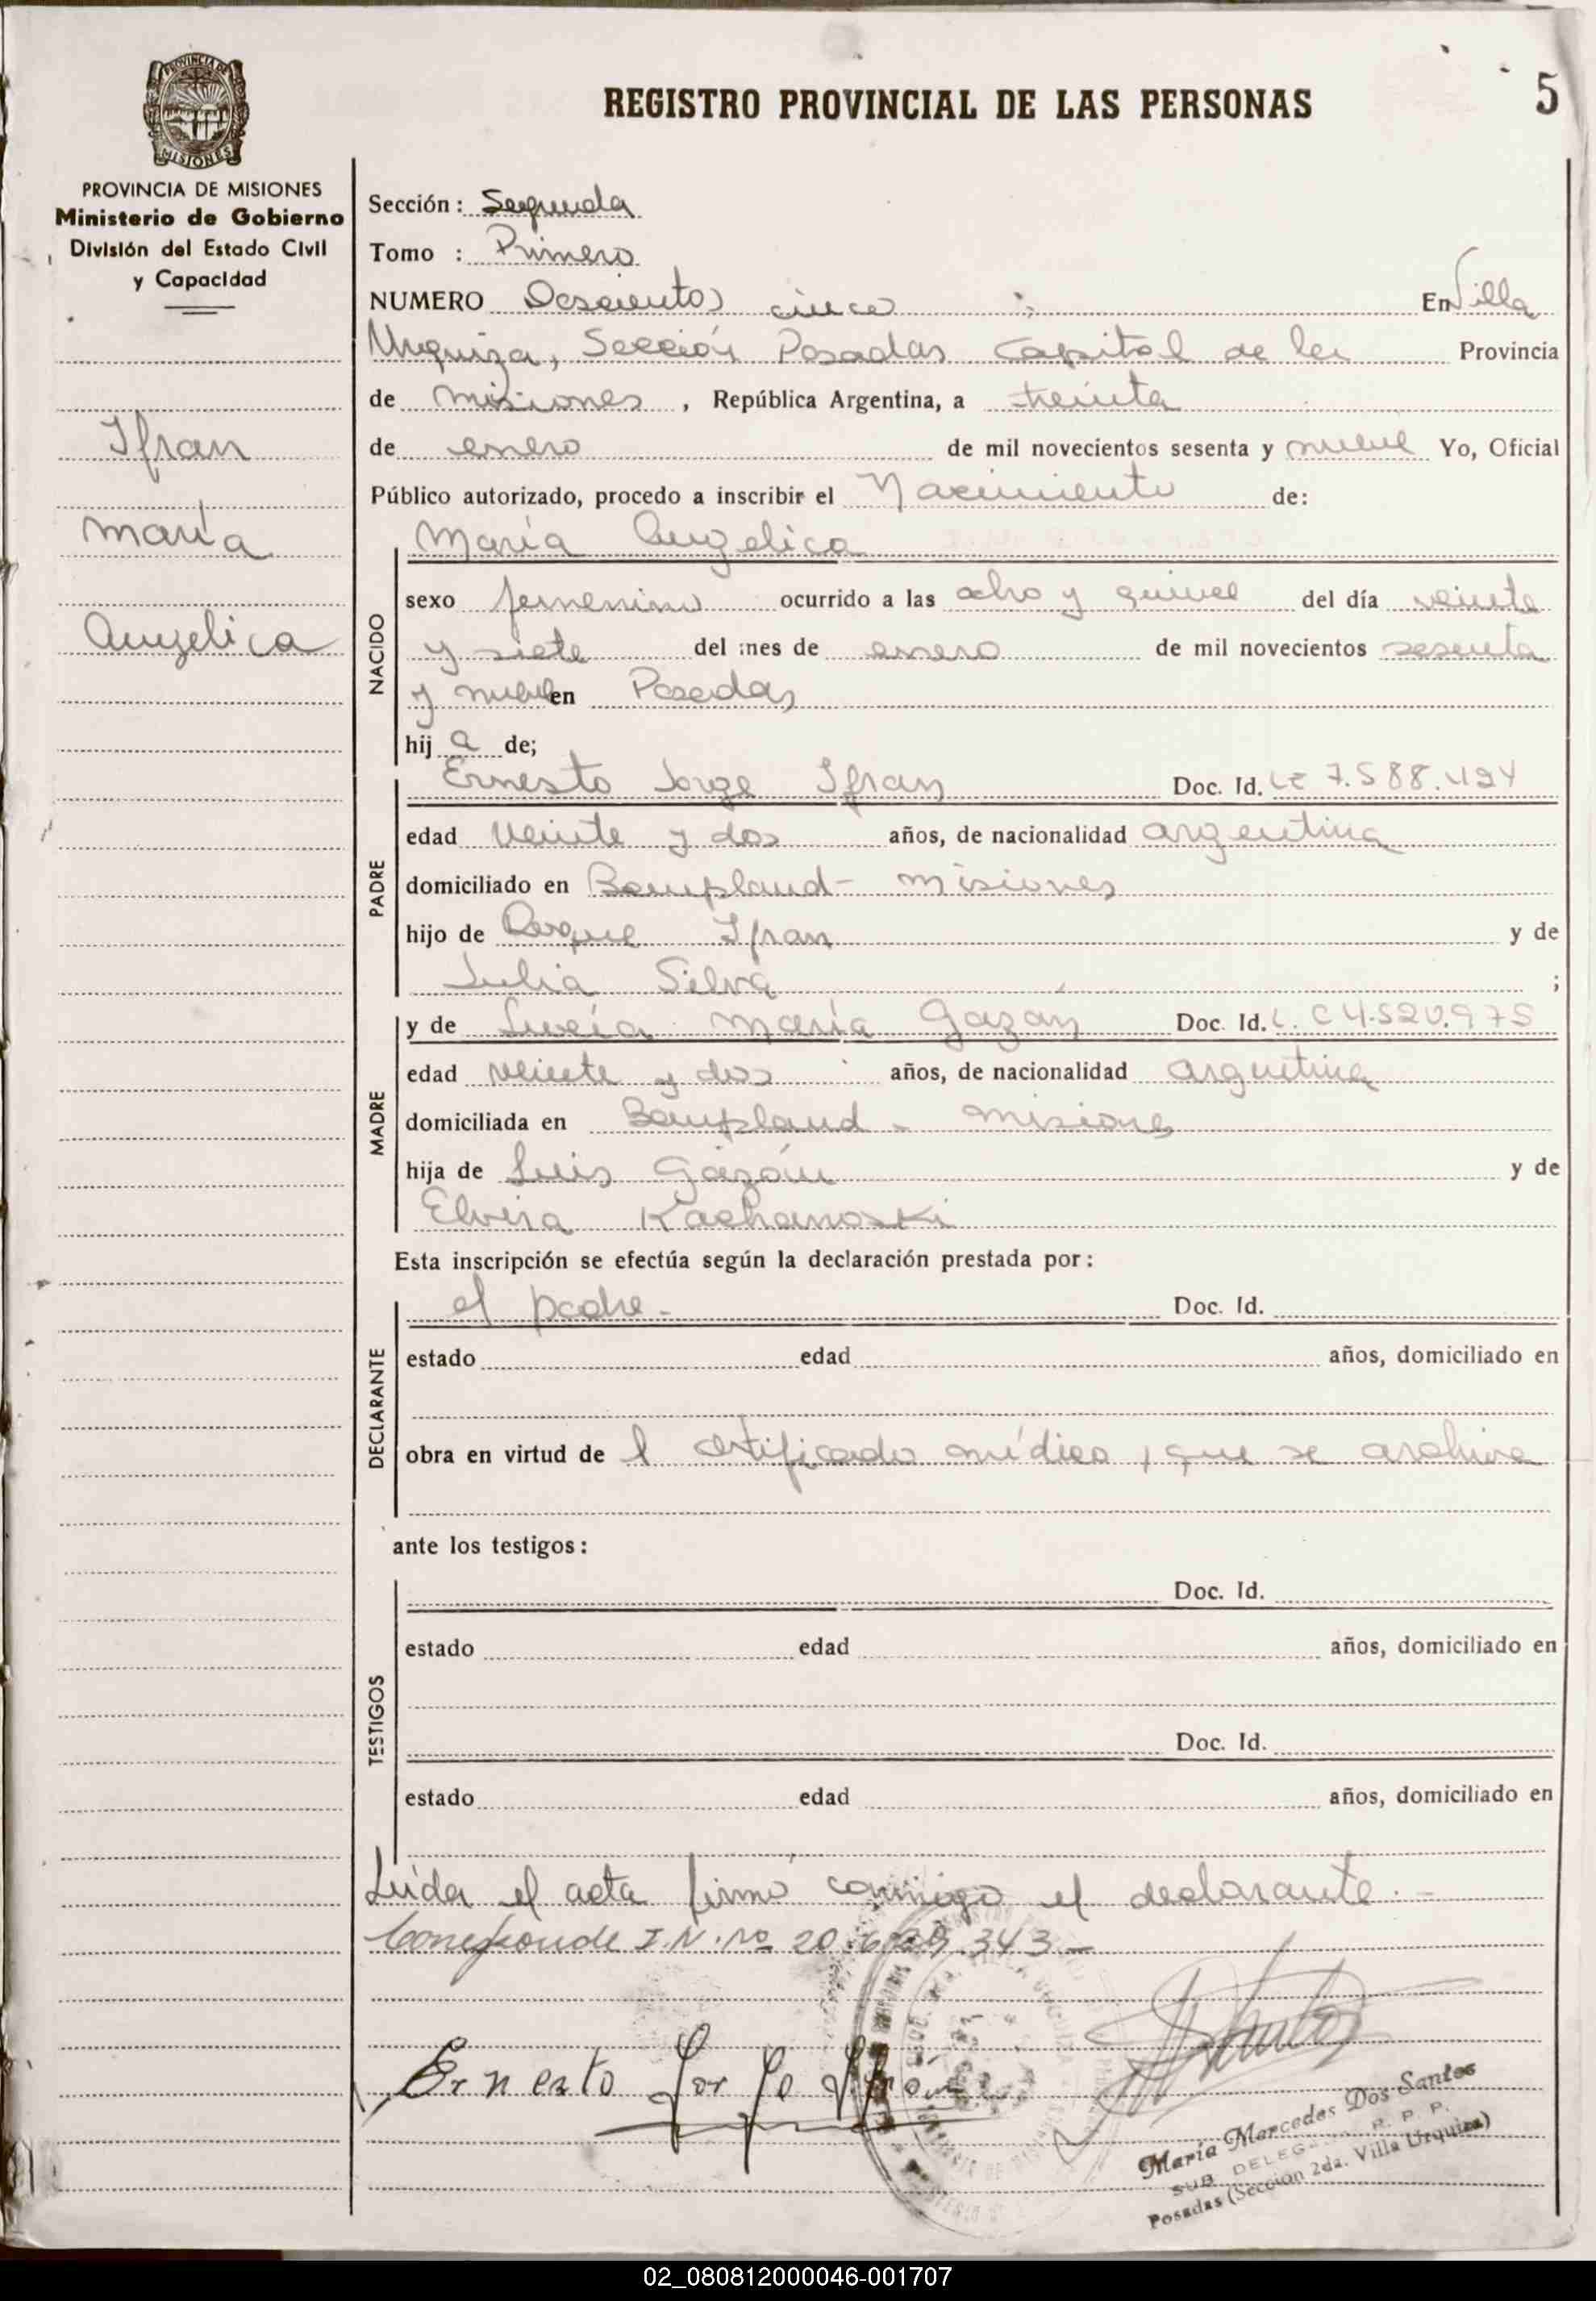 REGISTRO PROVINCIAL DE LAS PERSONAS
5
PROVINCIA DE
MISIONES
PROVINCIA DE MISIONES
Ministerio de Gobierno
División del Estado Civil
y Capacidad
Ifran
María
Angelica
Sección: Segunda
Tomo : Primero
NUMERO Doscientos cinco En Villa
Urquiza, Sección Posadas Capital de la Provincia
de Misiones , República Argentina, a treinta
de enero de mil novecientos sesenta y nueve Yo, Oficial
Público autorizado, procedo a inscribir el Nacimiento de:
NACIDO
María Angelica
sexo femenino ocurrido a las ocho y quince del día veinte
y siete del mes de enero de mil novecientos sesenta
y nueve en Posadas
hij a de;
PADRE
Ernesto Jorge Ifran Doc. Id. LE 7.588.424
edad veinte y dos años, de nacionalidad argentina
domiciliado en Bompland - Misiones
hijo de Roque Ifran y de
Julia Silva ;
MADRE
y de Lucía María Gazan Doc. Id. L.C 4.520.975
edad veinte y dos años, de nacionalidad argentina
domiciliada en Bompland - Misiones
hija de Luis Gazán y de
Elvira Kachanoski
Esta inscripción se efectúa según la declaración prestada por:
DECLARANTE
el padre - Doc. Id.
estado edad años, domiciliado en
obra en virtud de l certificado médico, que se archiva
ante los testigos:
TESTIGOS
Doc. Id.
estado edad años, domiciliado en
Doc. Id.
estado edad años, domiciliado en
Leída el acta firmó conmigo el declarante. -
Corresponde I.N. no 20.629.343 -
Ernesto Jorge Ifrán
María Mercedes Dos Santos
SUB DELEGADA R. P. P.
Posadas (Sección 2da. Villa Urquiza)
02_080812000046-001707